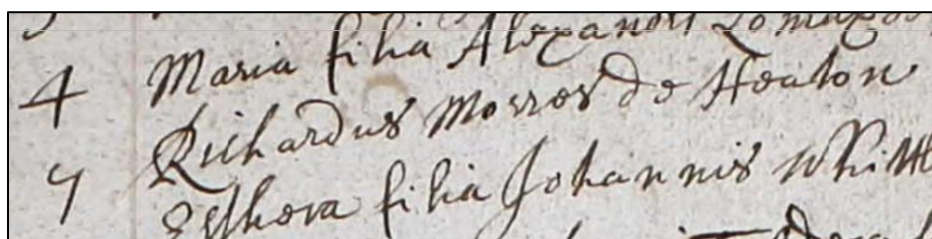 4 Maria filia Alexandri Lomaxe
Richardus Morres de Heaton
7 Esthera filia Johannis Whittl